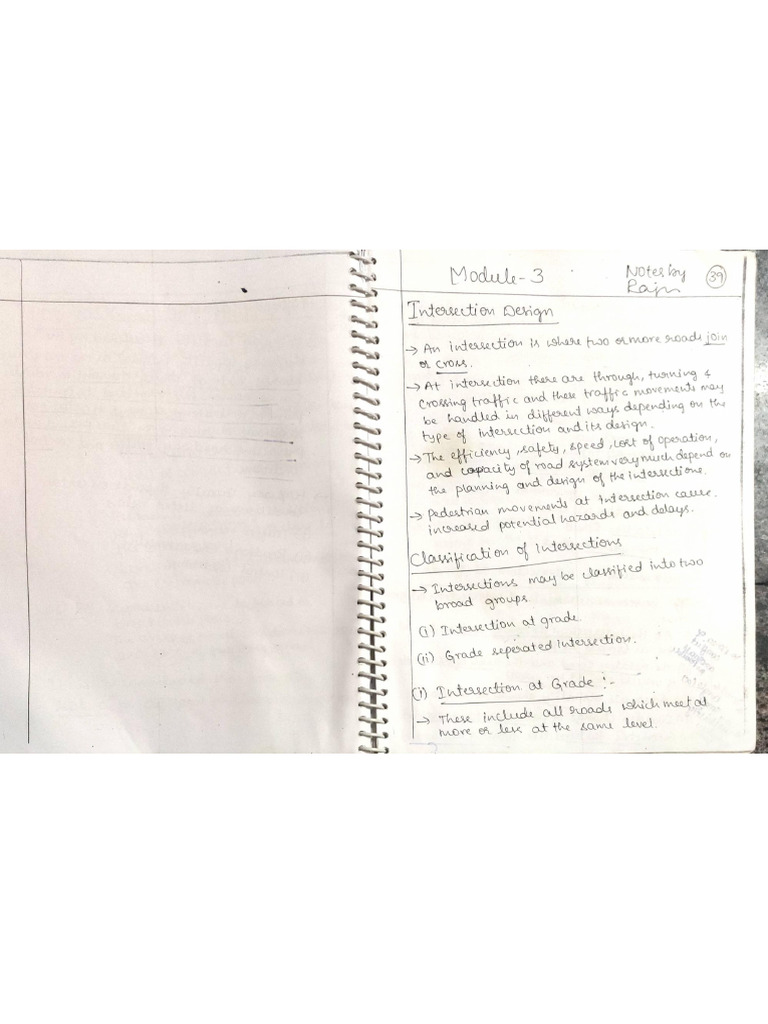 Module-3
Notes by
39
Intersection Design
→ An intersection is where two or more roads join
or cross.
→ At intersection there are through, turning &
crossing traffic and these traffic movements may
be handled in different ways depending on the
type of intersection and its design.
→ The efficiency, safety, speed, cost of operation,
and capacity of road system very much depend on
the planning and design of the intersections.
→ Pedestrian movements at intersection cause
increased potential hazards and delays.
Classification of Intersections
→ Intersections may be classified into two
broad groups.
(i) Intersection at grade.
(ii) Grade seperated intersection.
(i) Intersection at Grade :-
→ These include all roads which meet at
more or less at the same level.